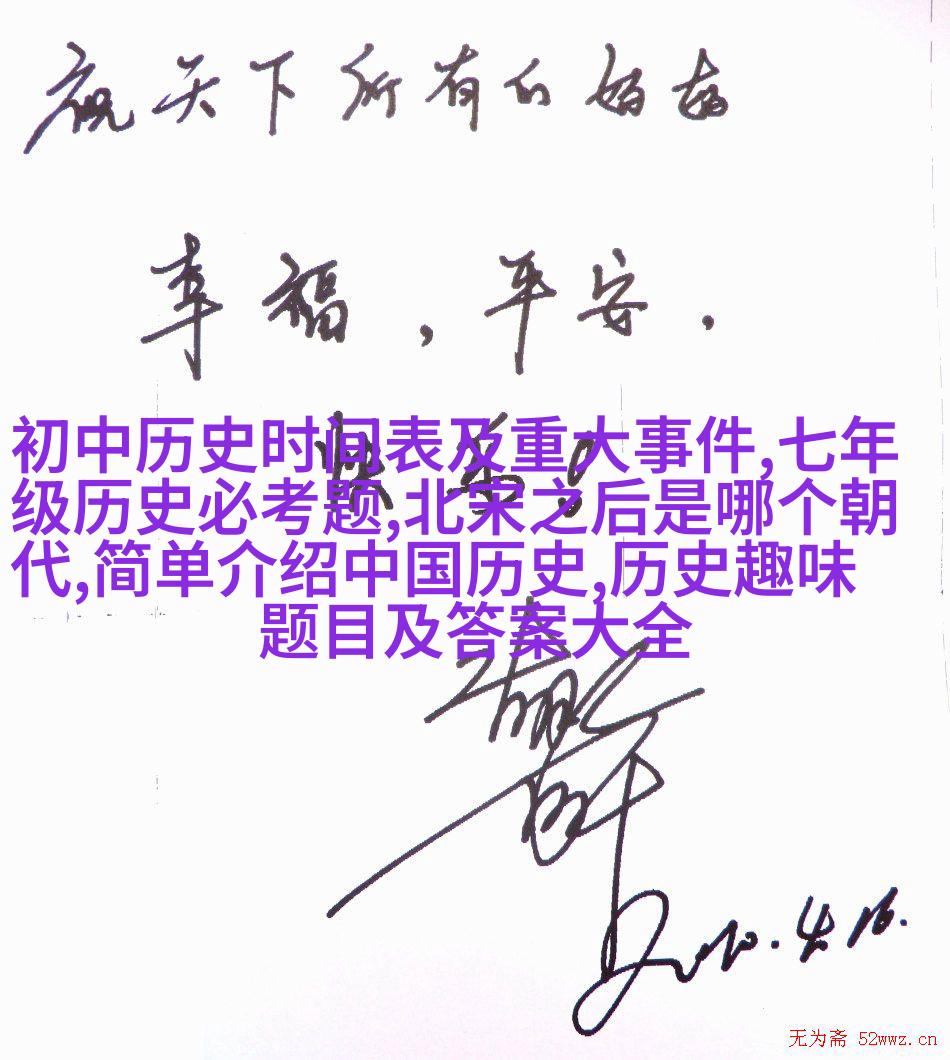 祝天下所有的妈妈
幸福，平安，
快乐！
初中历史时间表及重大事件,七年
级历史必考题,北宋之后是哪个朝
代,简单介绍中国历史,历史趣味
题目及答案大全
2010.4.16.
无为斋 52wwz.cn